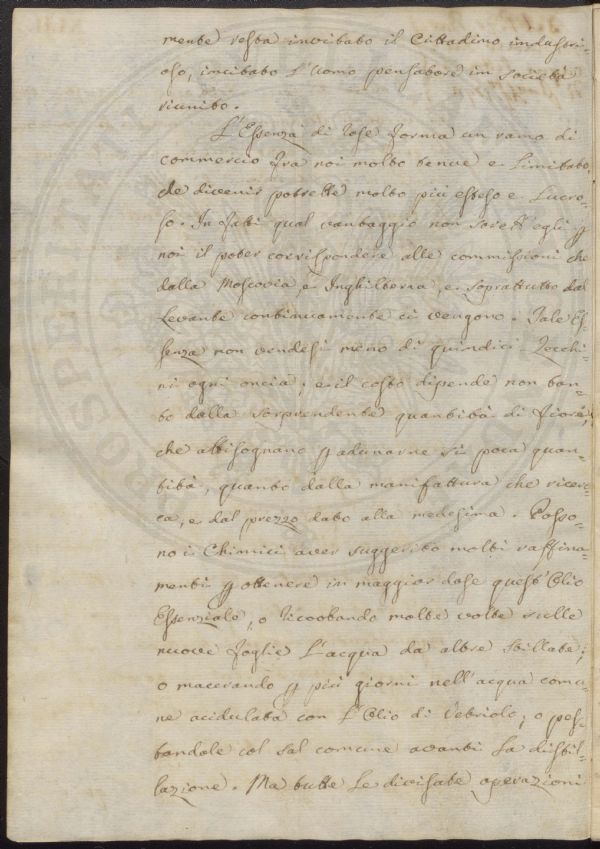 mente resta invitato il Cittadino industri-
oso, incitato l'Uomo pensatore in società
riunito.
L'Essenza di Rose forma un ramo di
commercio fra noi molto tenue e limitato,
che divenir potrebbe molto più esteso e lucro-
so. In fatti qual vantaggio non sarebb'egli p
noi il poter corrispondere alle commissioni che
dalla Moscovia, e Inghilterra, e soprattutto dal
Levante continuamente ci vengono. Tale Es-
senza non vendesi meno di quindici Zecchi-
ni ogni oncia, e il costo dipende non tan-
to dalla sorprendente quantità di Fiori,
che abbisognano p adunarne sì poca quan-
tità, quanto dalla manifattura che ricer-
ca, e dal prezzo dato alla medesima. Posso-
no i Chimici aver suggerito molti raffina-
menti p ottenere in maggior dose quest'Olio
Essenziale, o ricoobando molte volte sulle
nuove foglie l'acqua da altre stillata;
o macerando p più giorni nell'acqua comu-
ne acidulata con l'Olio di Vetriolo; o pes-
tandole col sal comune avanti la distil-
lazione. Ma tutte le divisate operazioni
PROSPERITATI